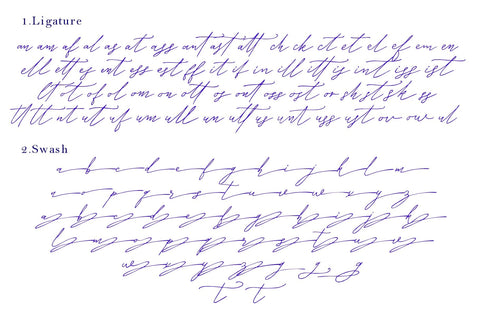 1.Ligature
an am af al as at ass ant ast att ch ck ct et el ef em en
ell ett es ent ess est ff it if in ill itt is int iss ist
lt ot of ol om on ott os ont oss ost or sh st sk ss
tt ut ut uf um ull un ult us unt uss ust ov ow ul
2.Swash
a b c d e f g h i j k l m
n o p q r s t u v w x y z
a b c d e f g h i j k
l m o p q r s t u v
w x y z g g g
t t